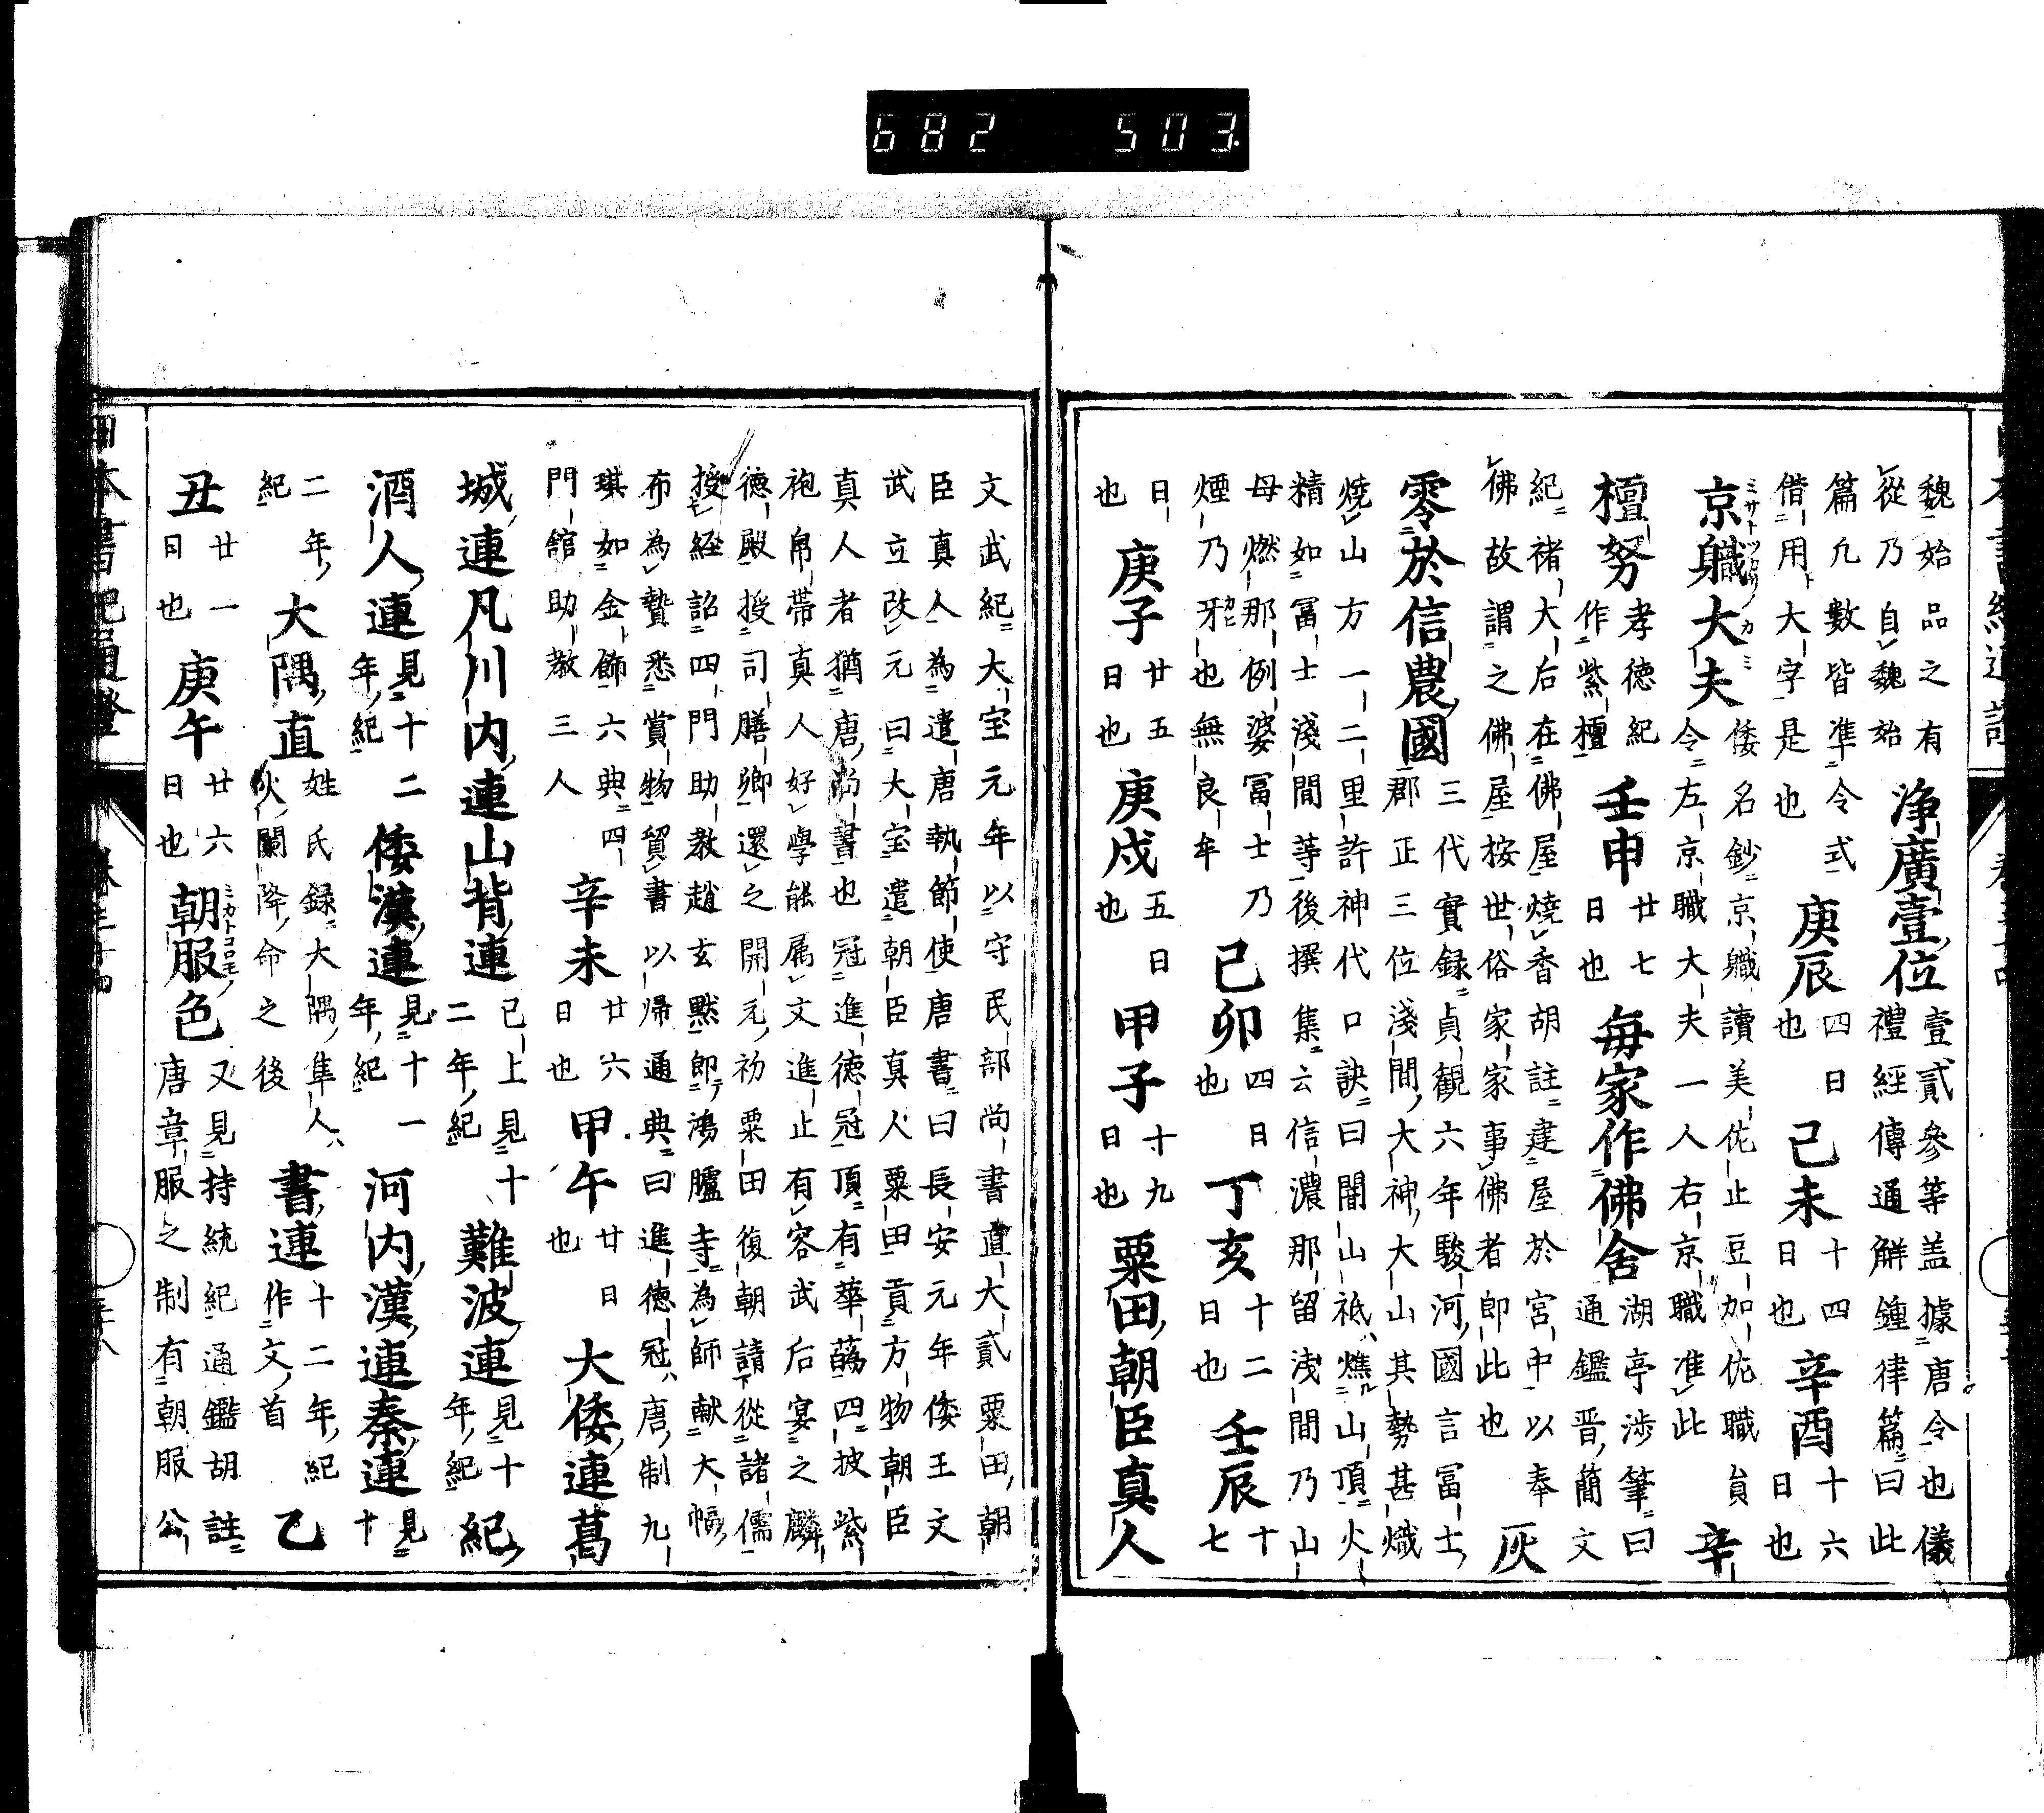 682 503
魏始品之有
從乃自魏始
浄廣壹位
壹貳參等盖據唐令也儀
禮經傳通解鍾律篇曰此
篇凢數皆準令式
借用大字是也
庚辰
四日
也
己未
十四
日也
辛酉
十六
日也
京職大夫
倭名鈔京職讀美佐止豆加佐職員
令左京職大夫一人右京職准此
辛
檀努
孝德紀
作紫檀
壬申
廿七
日也
毎家作佛舍
湖亭渉筆曰
通鑑晋簡文
紀褚大后在佛屋燒香胡註建屋於宮中以奉
佛故謂之佛屋按世俗家家事佛者即此也
灰
零於信農國
三代實録貞觀六年駿河國言冨士
郡正三位淺間大神大山其勢甚熾
燒山方一二里許神代口訣曰閫山祇燋山頂火
精如冨士淺間等後撰集云信濃那留淺間乃山
母燃那例婆冨士乃
煙乃牙也無良牟
己卯
四日
也
丁亥
十二
日也
壬辰
十
七
日
也
庚子
廿五
日也
庚戍
五日
也
甲子
十九
日也
粟田朝臣真人
文武紀大宝元年以守民部尚書直大貳粟田朝
臣真人為遣唐執節使唐書曰長安元年倭王文
武立改元曰大宝遣朝臣真人粟田貢方物朝臣
真人者猶唐尚書也冠進德冠頂有華蘤四披紫
袍帛帶真人好學能属文進止有容武后宴之麟
德殿授司膳卿還之開元初粟田復朝請從諸儒
授經詔四門助教趙玄默即鴻臚寺為師献大幅
布為贄悉賞物貿書以帰通典曰進德冠唐制九
琪如金飾六典四
門舘助教三人
辛未
廿六
日也
甲午
廿日
也
大倭連葛
城連凡川内連山背連
已上見十
二年紀
難波連
見十
年紀
紀
酒人連
見十二
年紀
倭漢連
見十一
年紀
河内漢連秦連
見
十
二年
紀
大隅直
姓氏録大隅隼人
火闌降命之後
書連
十二年紀
作文首
乙
丑
廿一
日也
庚午
廿六
日也
朝服色
又見持統紀通鑑胡註
唐章服之制有朝服公